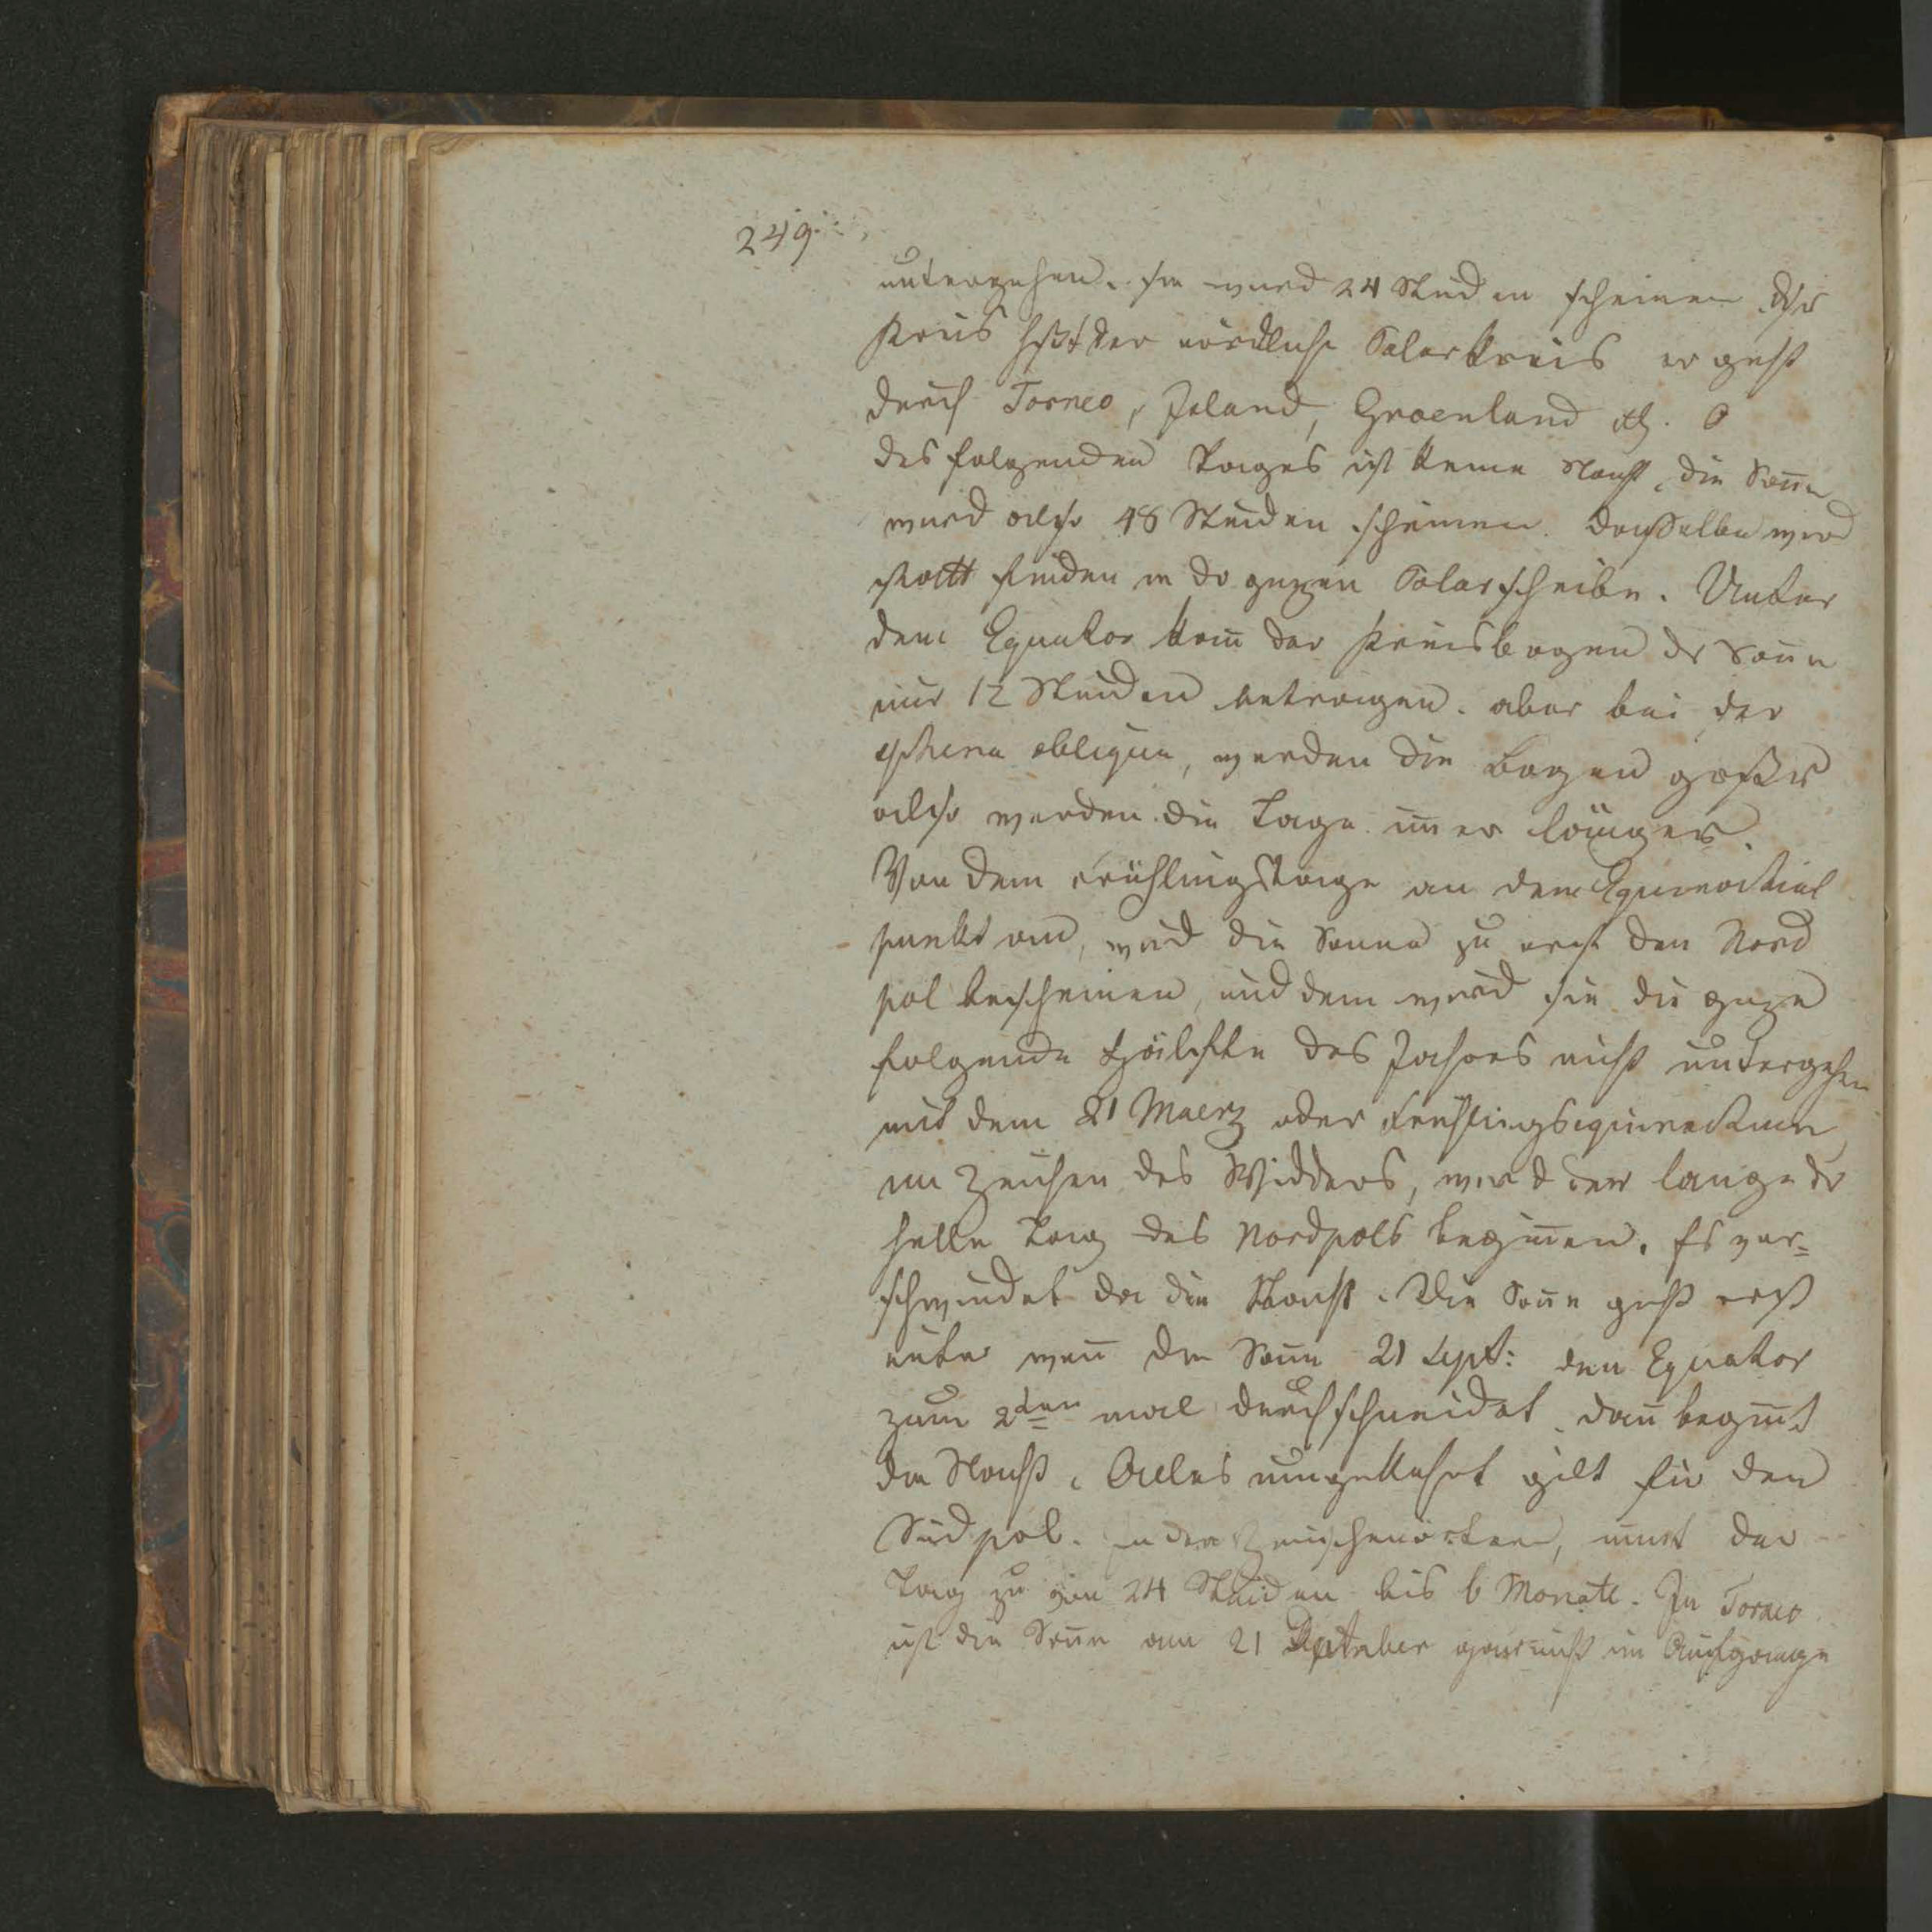 249.
untergehen. sie wird 24 Stunden scheinen. Dsr
Kreis hßt der nördliche Polarkreis er geht
durch Torneo, Island, Groenland etc.
des folgenden Tages ist keine Nacht, die Soñe
wird also 48 Stunden scheinen. Dasselbe wird
statt finden in dr gazen Polarscheibe. Unter
dem Equator kañ der Kreisbogen dr Soñe
nur 12 Stunden betragen. aber bei der
sphera obliqua, werden die Bogen größer
also werden die Tage im̃er länger.
Von dem Frühlingstage an dem Equinoctial
punkt an, wird die Sonne zu erst den Nord
pol bescheinen, und dem wird sie die gaze
folgende Hälfte des Jahres nicht untergehen
mit dem 21 Maerz oder Frühlingsequinoctium
im Zeichen des Widders, wird der lange dr
helle Tag des Nordpols begiñen. Es ver=
schwindet da die Nacht. Die Soñe geht erst
unter weñ die Soñe 21 Sept: den Equator
zum 2ten mal durchschneidet, dañ begiñt
die Nacht. Alles umgekehrt gilt für den
Südpol. In den Zwischenörtern, nim̃t der
Tag zu von 24 Stunden bis 6 Monate. In Torneo
ist die Soñe am 21 September gar nicht im Aufgange